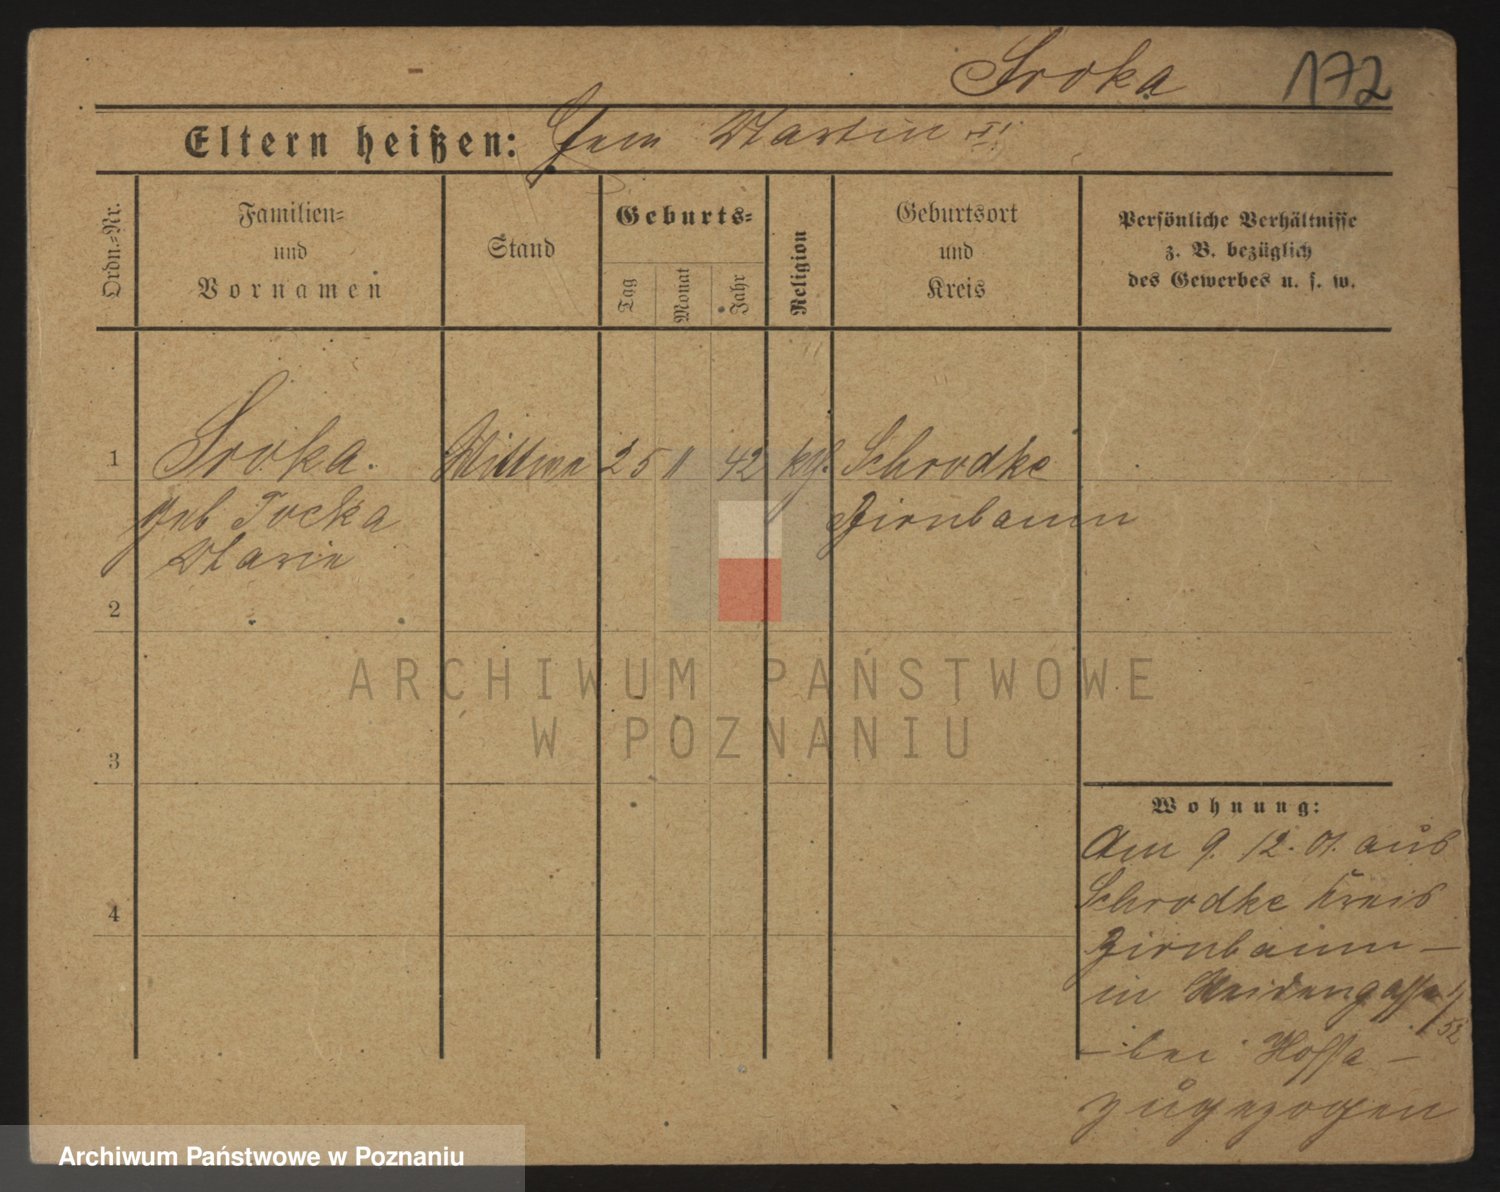 Sroka 172
Eltern heißen: Martin
Ordn.-Nr.
Familien-
und
Vornamen
Stand
Geburts-
Tag
Monat
Jahr
Religion
Geburtsort
und
Kreis
Persönliche Verhältnisse
z. B. bezüglich
des Gewerbes u. s. w.
1 Sroka. Wittwe 25 11 42 kth. Schrodke
geb Tocka Birnbaum
Marie
2
3
4
Wohnung:
Am 9. 12. 01. aus
Schrodke Kreis
Birnbaum –
in
– bei Hoffa –
zugezogen
ARCHIWUM PAŃSTWOWE
W POZNANIU
Archiwum Państwowe w Poznaniu